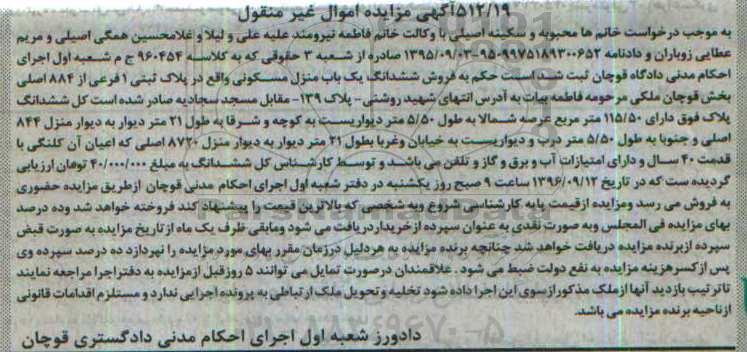 ۵۱۲/۱۹آگهی مزایده اموال غیر منقول
به موجب درخواست خانم ها محبوبه و سکینه اصیلی با وکالت خانم فاطمه نیرومند علیه علی و لیلا و غلامحسین همگی اصیلی و مریم
عطایی زوباران و دادنامه ۹۵۰۹۹۷۵۱۸۹۳۰۰۶۵۲-۱۳۹۵/۰۹/۰۳ صادره از شعبه ۳ حقوقی که به کلاسه ۹۶۰۴۵۴ ج م شعبه اول اجرای
احکام مدنی دادگاه قوچان ثبت شده است حکم به فروش ششدانگ یک باب منزل مسکونی واقع در پلاک ثبتی ۱ فرعی از ۸۸۴ اصلی
بخش قوچان ملکی مرحومه فاطمه بیات به آدرس انتهای شهید روشنی- پلاک ۱۳۹- مقابل مسجد سجادیه صادر شده است کل ششدانگ
پلاک فوق دارای ۱۱۵/۵۰ متر مربع عرصه شمالا به طول ۵/۵۰ متر دیواریست به کوچه و شرقا به طول ۲۱ متر دیوار به دیوار منزل ۸۴۴
اصلی و جنوبا به طول ۵/۵۰ متر درب و دیواریست به خیابان وغربا بطول ۲۱ متر دیوار به دیوار منزل ۸۷۲۰ اصلی که اعیان آن کلنگی با
قدمت ۴۰ سال و دارای امتیازات آب و برق و گاز و تلفن می باشد و توسط کارشناس کل ششدانگ به مبلغ ۴۰/۰۰۰/۰۰۰ تومان ارزیابی
گردیده ست که در تاریخ ۱۳۹۶/۰۹/۱۲ ساعت ۹ صبح روز یکشنبه در دفتر شعبه اول اجرای احکام مدنی قوچان ازطریق مزایده حضوری
به فروش می رسد ومزایده ازقیمت پایه کارشناسی شروع وبه شخصی که بالاترین قیمت را پیشنهاد کند فروخته خواهد شد وده درصد
بهای مزایده فی المجلس وبه صورت نقدی به عنوان سپرده ازخریداردریافت می شود ومابقی ظرف یک ماه ازتاریخ مزایده به صورت قبض
سپرده ازبرنده مزایده دریافت خواهد شد چنانچه برنده مزایده به هردلیل درزمان مقرر بهای مورد مزایده را نپردازد ده درصد سپرده وی
پس ازکسرهزینه مزایده به نفع دولت ضبط می شود . علاقمندان درصورت تمایل می توانند ۵ روزقبل ازمزایده به دفتراجرا مراجعه نمایند
تاترتیب بازدید آنها ازملک مذکورازسوی این اجرا داده شود تخلیه وتحویل ملک ارتباطی به پرونده اجرایی ندارد و مستلزم اقدامات قانونی
ازناحیه برنده مزایده می باشد.
دادورز شعبه اول اجرای احکام مدنی دادگستری قوچان